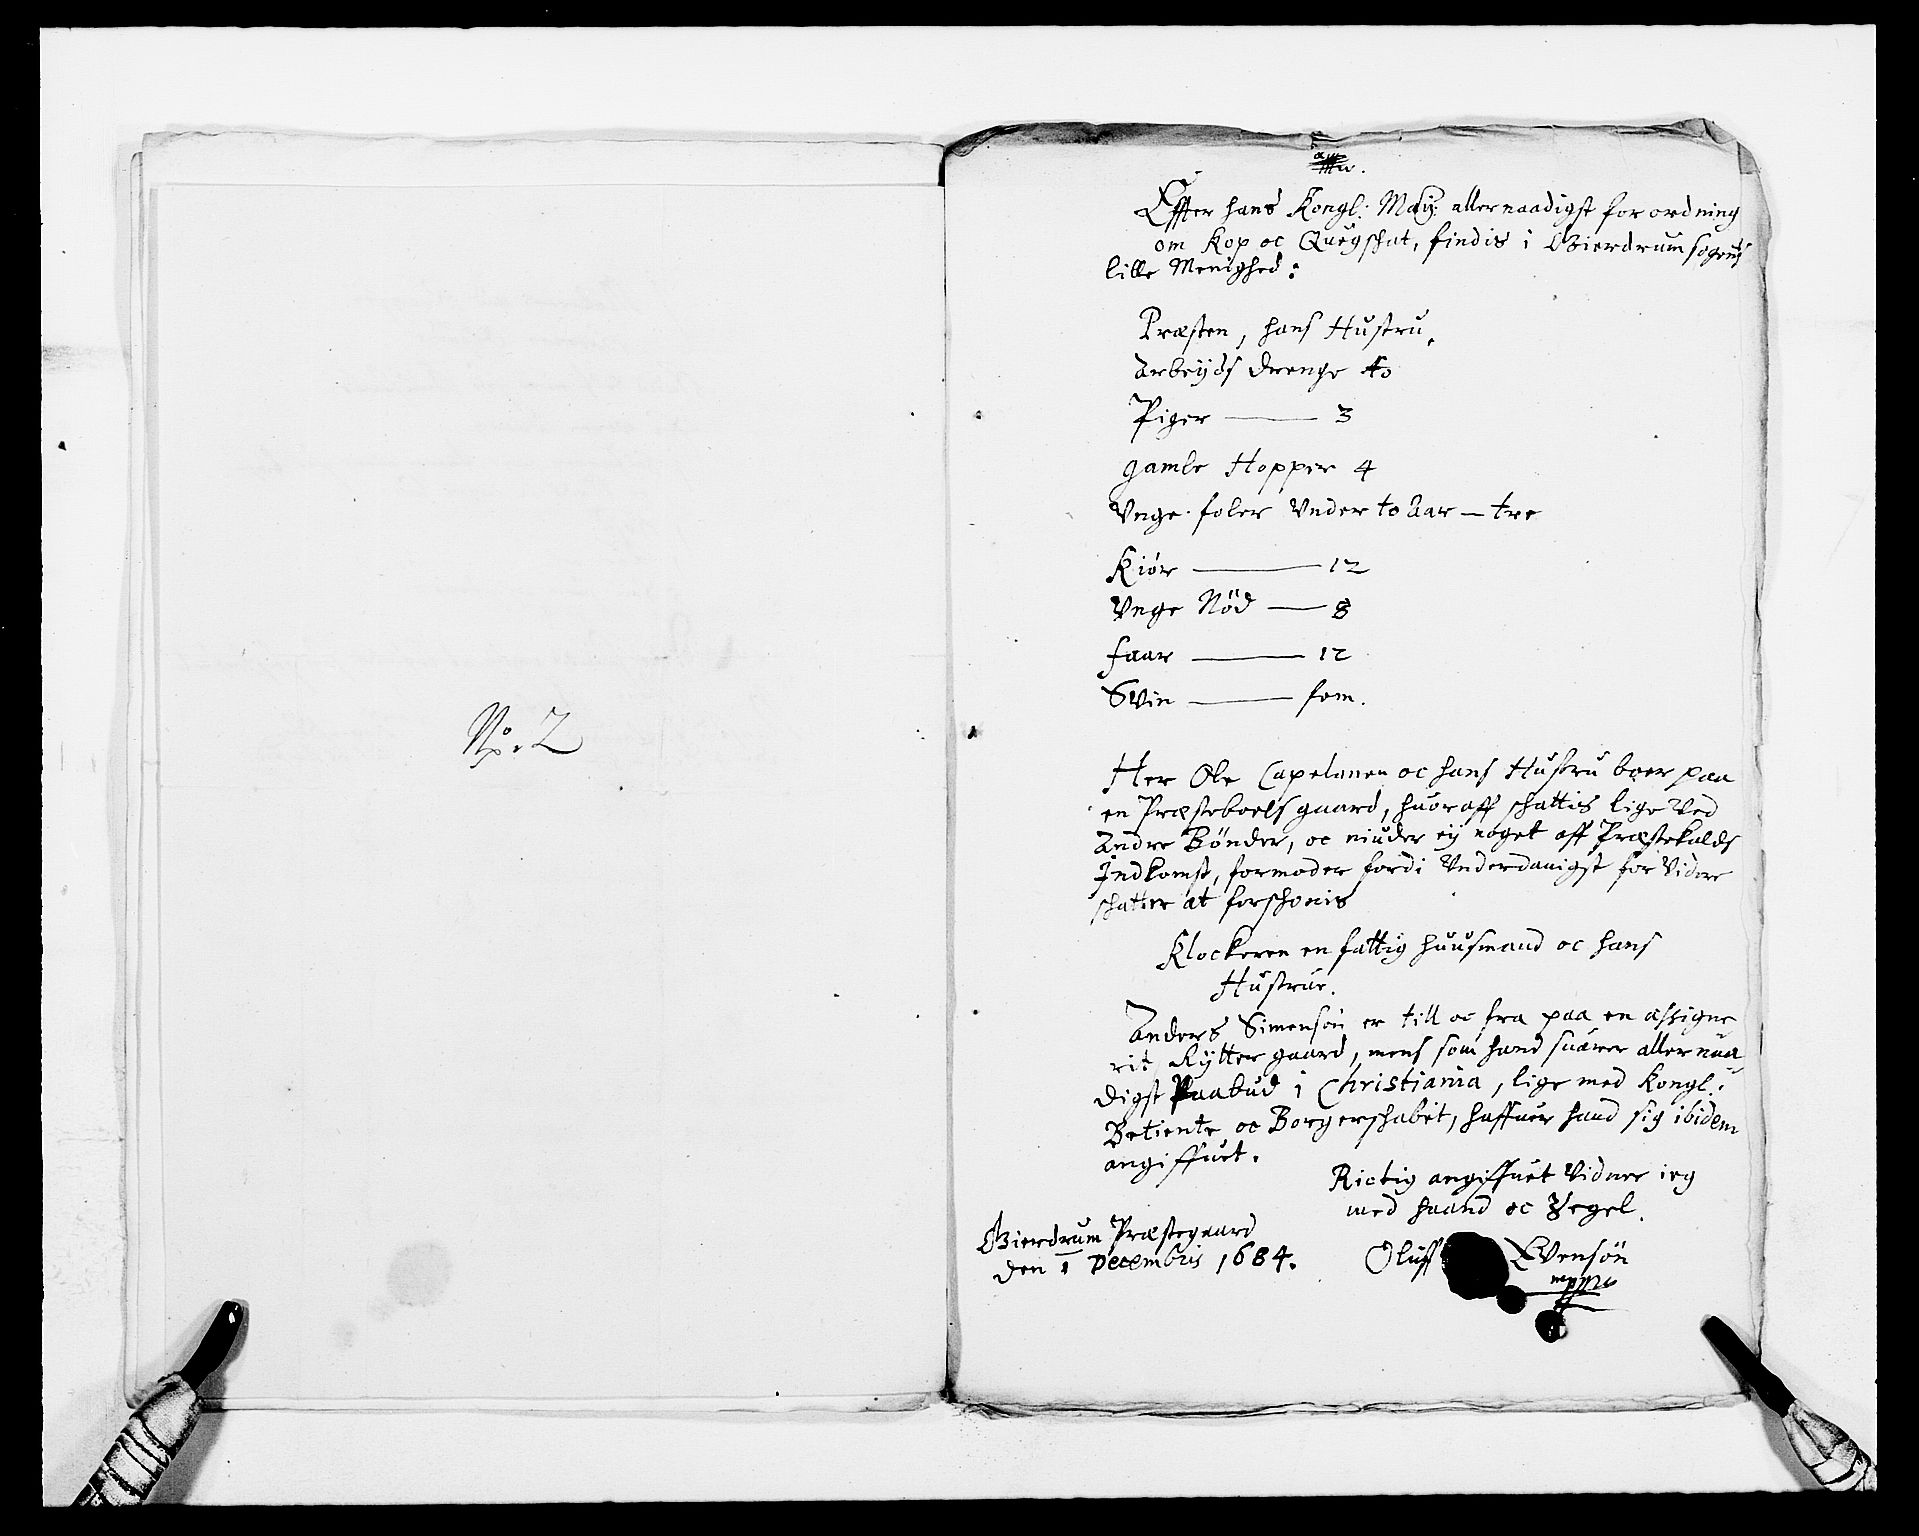 No. 2
Effter hans Kongl: May: allernaadigst forordning
om Kop oc Quegschat, findis i Gierdrum sogens
lille Menighed:
Præsten, hans Hustru,
Arbeÿds drenge to
Piger — 3
gamle Hopper 4
Vnge foler Vnder to Aar — tre
Kiör — 12
Vnge Nöd — 8
faar — 12
Svin — fem.
Her Ole Capelanen oc hans Hustru boer paa
en Præsteboels gaard, huoraff schattis lige Ved
Andre Bönder, oc niuder eÿ noget aff Præstekalds
Indkomst, formoder fordi Vnderdanigst for Videre
schatter at forschonis
Klockeren en fattig huusmand oc hans
Hustrue.
Anders Simensön er till oc fra paa en assigne
rit Rÿtter gaard, mens som hand suarer aller naa
digst Paabud i Christiania, lige med Kongl:
Betiente oc Borgerschabet, haffuer hand sig ibidem
angiffuet.
Rictig angiffuet Vidner ieg
med haand oc Zegel.
Gierdrum Præstegaard
den 1 Decembris 1684.
Oluff Evensön
mppria